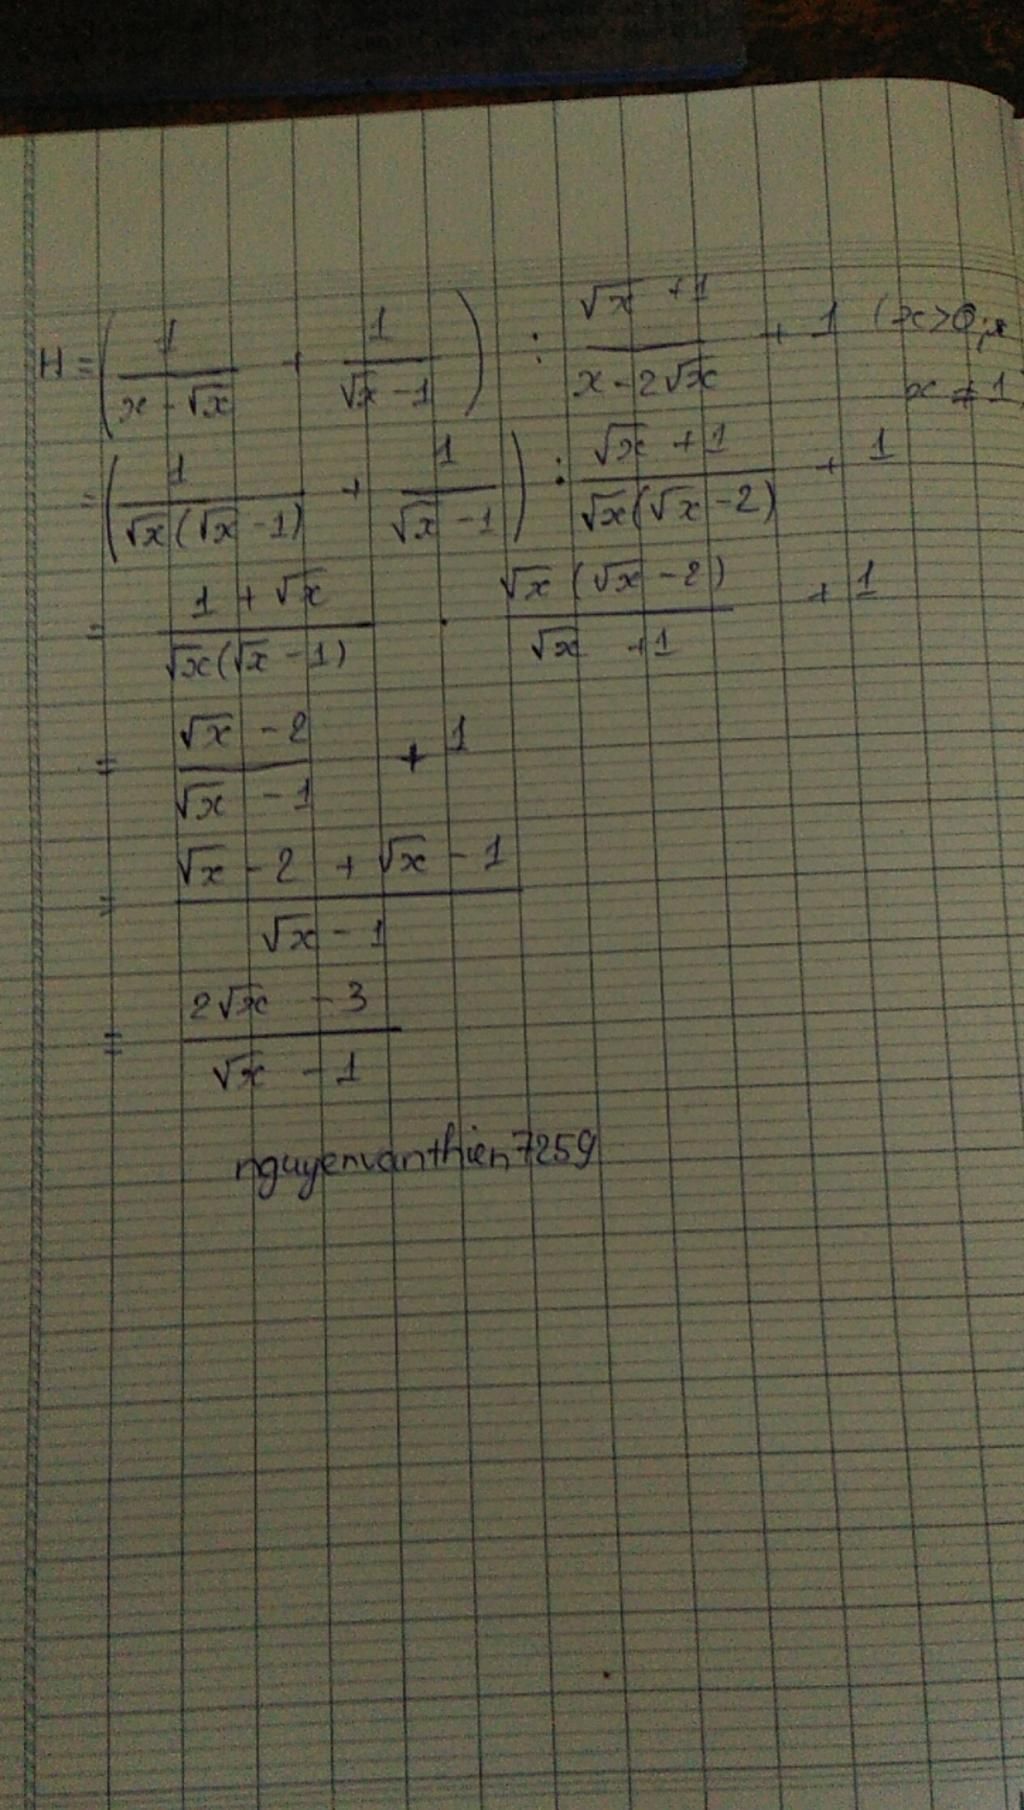 H = (1/(x - √x) + 1/(√x - 1)) : (√x + 1)/(x - 2√x) + 1 (x > 0; x
x ≠ 1)
= (1/(√x(√x - 1)) + 1/(√x - 1)) : (√x + 1)/(√x(√x - 2)) + 1
= (1 + √x)/(√x(√x - 1)) . (√x(√x - 2))/(√x + 1) + 1
= (√x - 2)/(√x - 1) + 1
= (√x - 2 + √x - 1)/(√x - 1)
= (2√x - 3)/(√x - 1)
nguyenvanthien7259